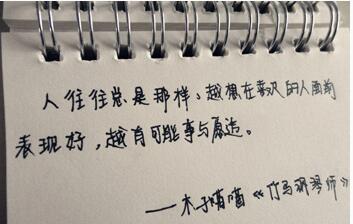 人往往总是那样、越想在喜欢的人面前
表现好，越有可能事与愿违。
——木子喵喵《竹马钢琴师》